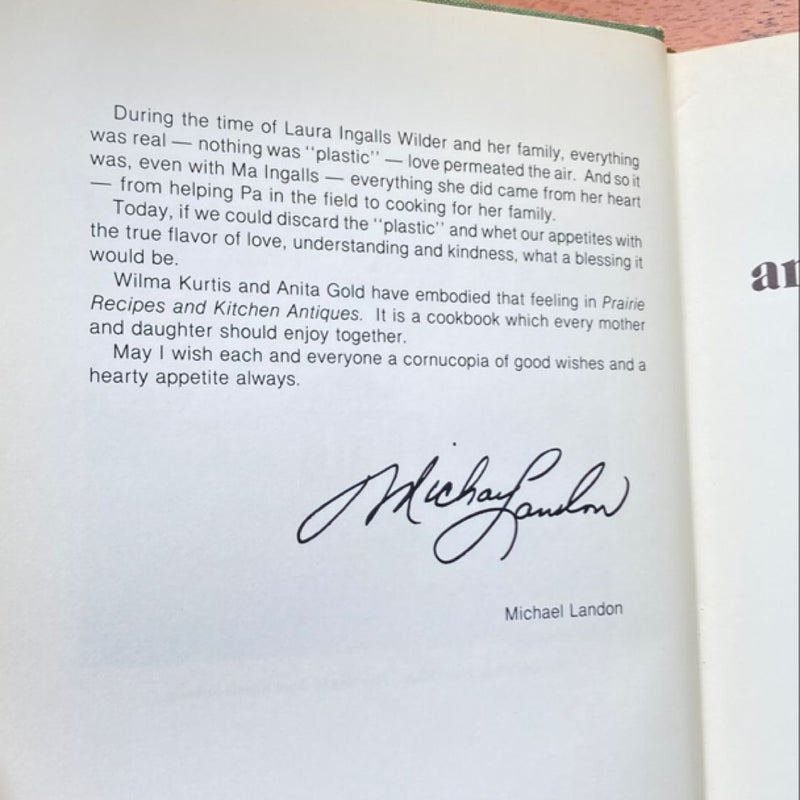 During the time of Laura Ingalls Wilder and her family, everything
was real — nothing was "plastic" — love permeated the air. And so it
was, even with Ma Ingalls — everything she did came from her heart
— from helping Pa in the field to cooking for her family.
Today, if we could discard the "plastic" and whet our appetites with
the true flavor of love, understanding and kindness, what a blessing it
would be.
Wilma Kurtis and Anita Gold have embodied that feeling in Prairie
Recipes and Kitchen Antiques. It is a cookbook which every mother
and daughter should enjoy together.
May I wish each and everyone a cornucopia of good wishes and a
hearty appetite always.
Michael Landon
Michael Landon
an